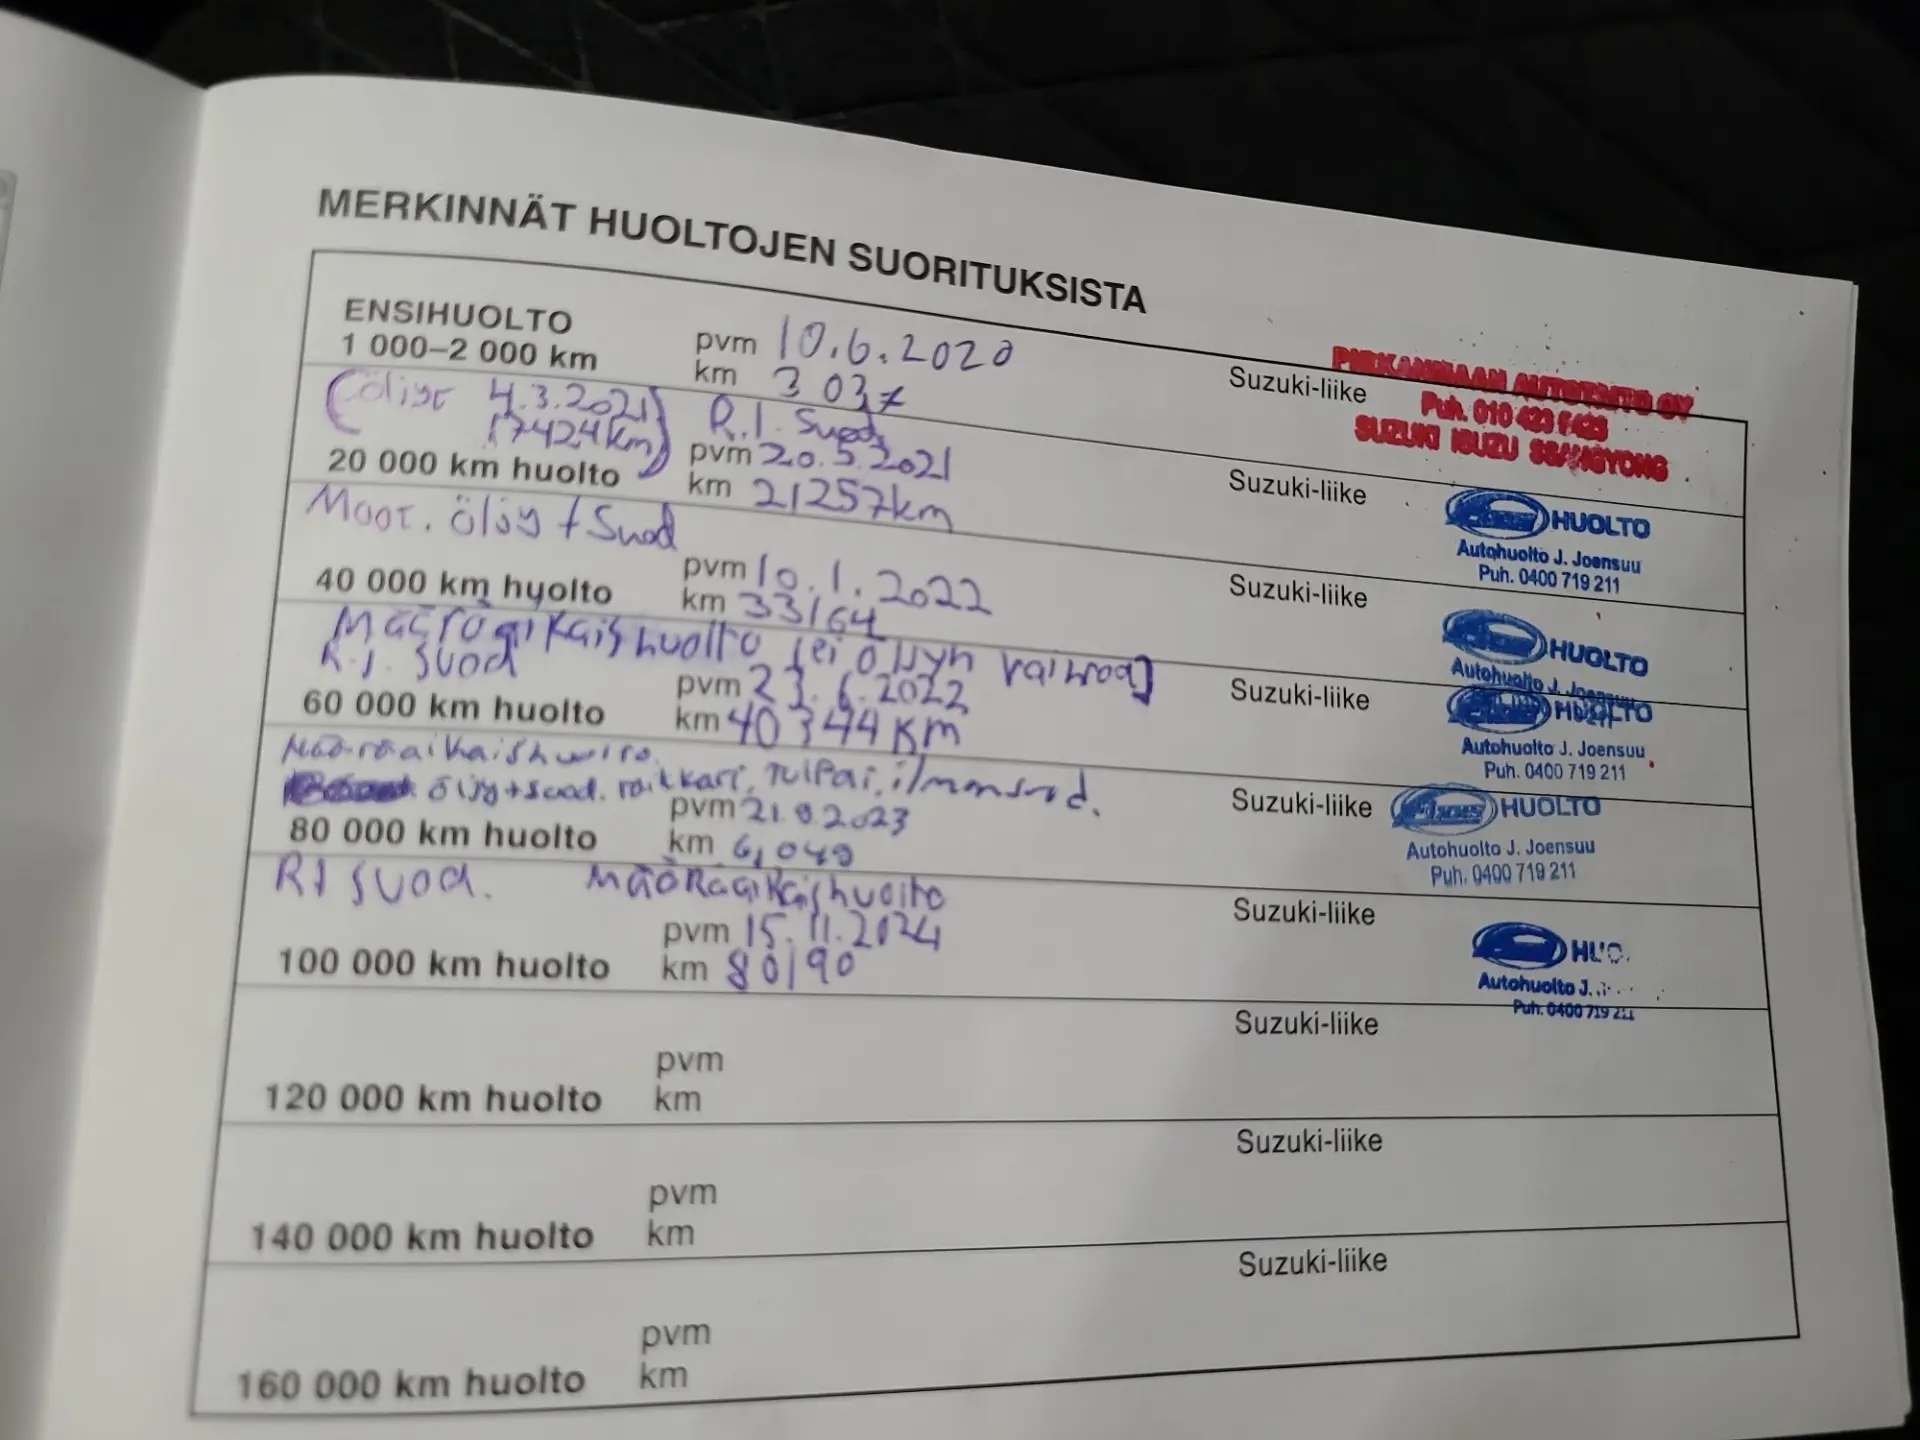 MERKINNÄT HUOLTOJEN SUORITUKSISTA
ENSIHUOLTO
1 000–2 000 km
pvm 10.6.2020
km 3 037
Suzuki-liike
Puh. 010 423
SUZUKI ISUZU SSANGYONG
4.3.2021)
17424km)
R.I. Suod
20 000 km huolto
pvm 20.5.2021
km 21257km
Suzuki-liike
HUOLTO
Autohuolto J. Joensuu
Puh. 0400 719 211
Moot. öljy + Suod
40 000 km huolto
pvm 10.1.2022
km 33164
Suzuki-liike
HUOLTO
Autohuolto J. Joensuu
Määräaikaishuolto [ei öljyn vaihtoa]
R.I. Suod
60 000 km huolto
pvm 23.6.2022
km 40344 KM
Suzuki-liike
HUOLTO
Autohuolto J. Joensuu
Puh. 0400 719 211
öljy+suod. raikkari, tulpat, ilmansuod.
80 000 km huolto
pvm 21.9.2023
km 61049
Suzuki-liike
HUOLTO
Autohuolto J. Joensuu
Puh. 0400 719 211
RI SUOD. MÄÄRÄAIKAIShuolto
100 000 km huolto
pvm 15.11.2024
km 80190
Suzuki-liike
Autohuolto J.
Puh. 0400 719 211
120 000 km huolto
pvm
km
Suzuki-liike
140 000 km huolto
pvm
km
Suzuki-liike
160 000 km huolto
pvm
km
Suzuki-liike